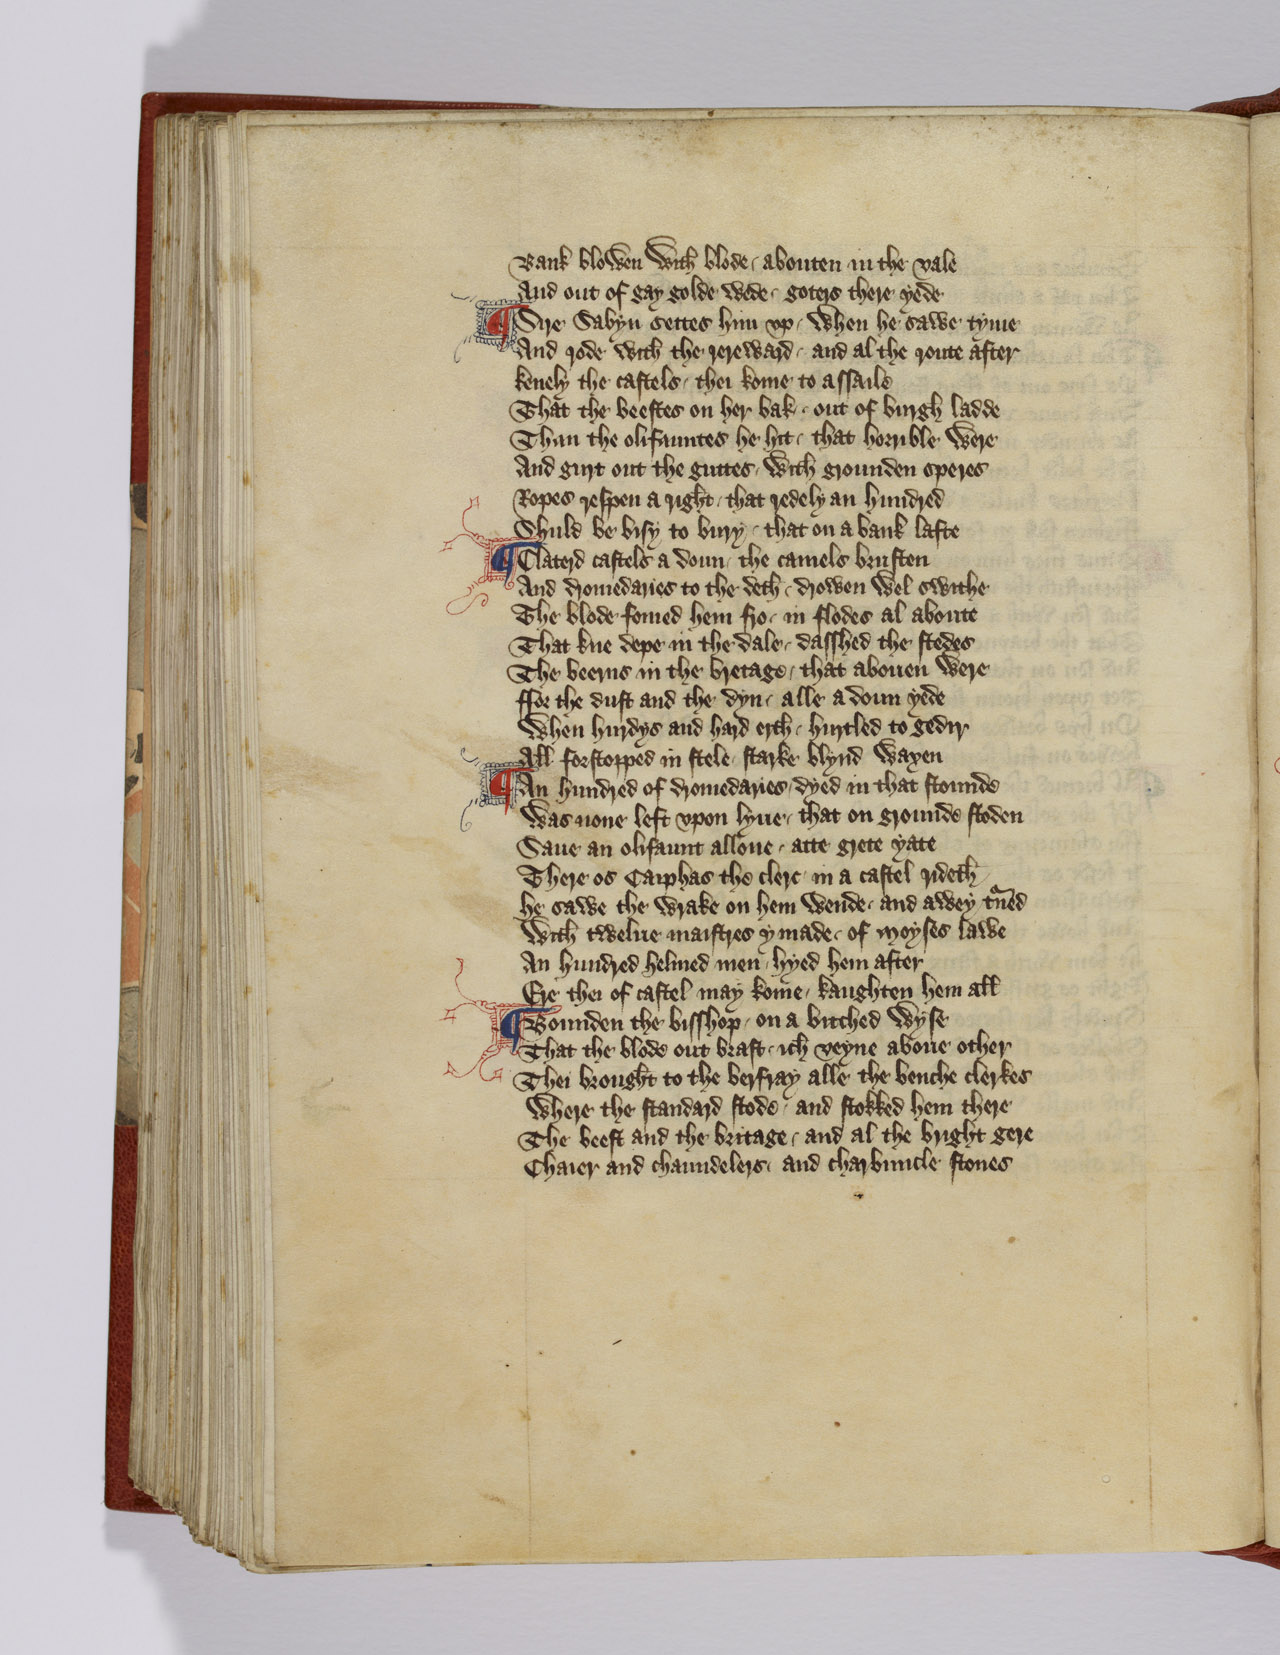 Bank blowen with blode / abouten in the vale
And out of gay golde wede / goters there yede
¶ Sire Sabyn settes him vp / when he sawe tyme
And rode with the rereward / and al the route after
kenely the castels / thei kome to assaile
That the beestes on her bak / out of burgh ladde
Than the olifauntes he hit / that horrible were
And girt out the guttes / with grounden speres
Ropes respen a right / that redely an hundred
Shuld be bisy to bury / that on a bank lafte
¶ Claterd castels a doun / the camels brusten
And dromedaries to the deth / drowen wel swithe
The blode fomed hem fro / in flodes al aboute
That kne depe in the dale / dasshed the stedes
The beerns in the bretage / that abouen were
ffor the dust and the dyn / alle a doun yede
When hurdys and hard erth / hurtled to gedir
All forstopped in stele / starke blynd waxen
¶ An hundred of dromedaries / dyed in that stounde
Was none left vpon lyue / that on grounde stoden
Saue an olifaunt allone / atte grete yate
There os Caiphas the clerc / in a castel rideth
he sawe the wrake on hem wende / and awey t᷑ned
With twelue maistres ymade / of Moyses lawe
An hundred helmed men / hyed hem after
Ere thei of castel may kome / kaughten hem all
¶ Bounden the bisshop / on a bitched wyse
That the blode out brast / ich veyne aboue other
Thei brought to the berfray alle the benche clerkes
Where the standard stode / and stokked hem there
The beest and the britage / and al the bright gere
Chaier and chaundelers / and charbuncle stones